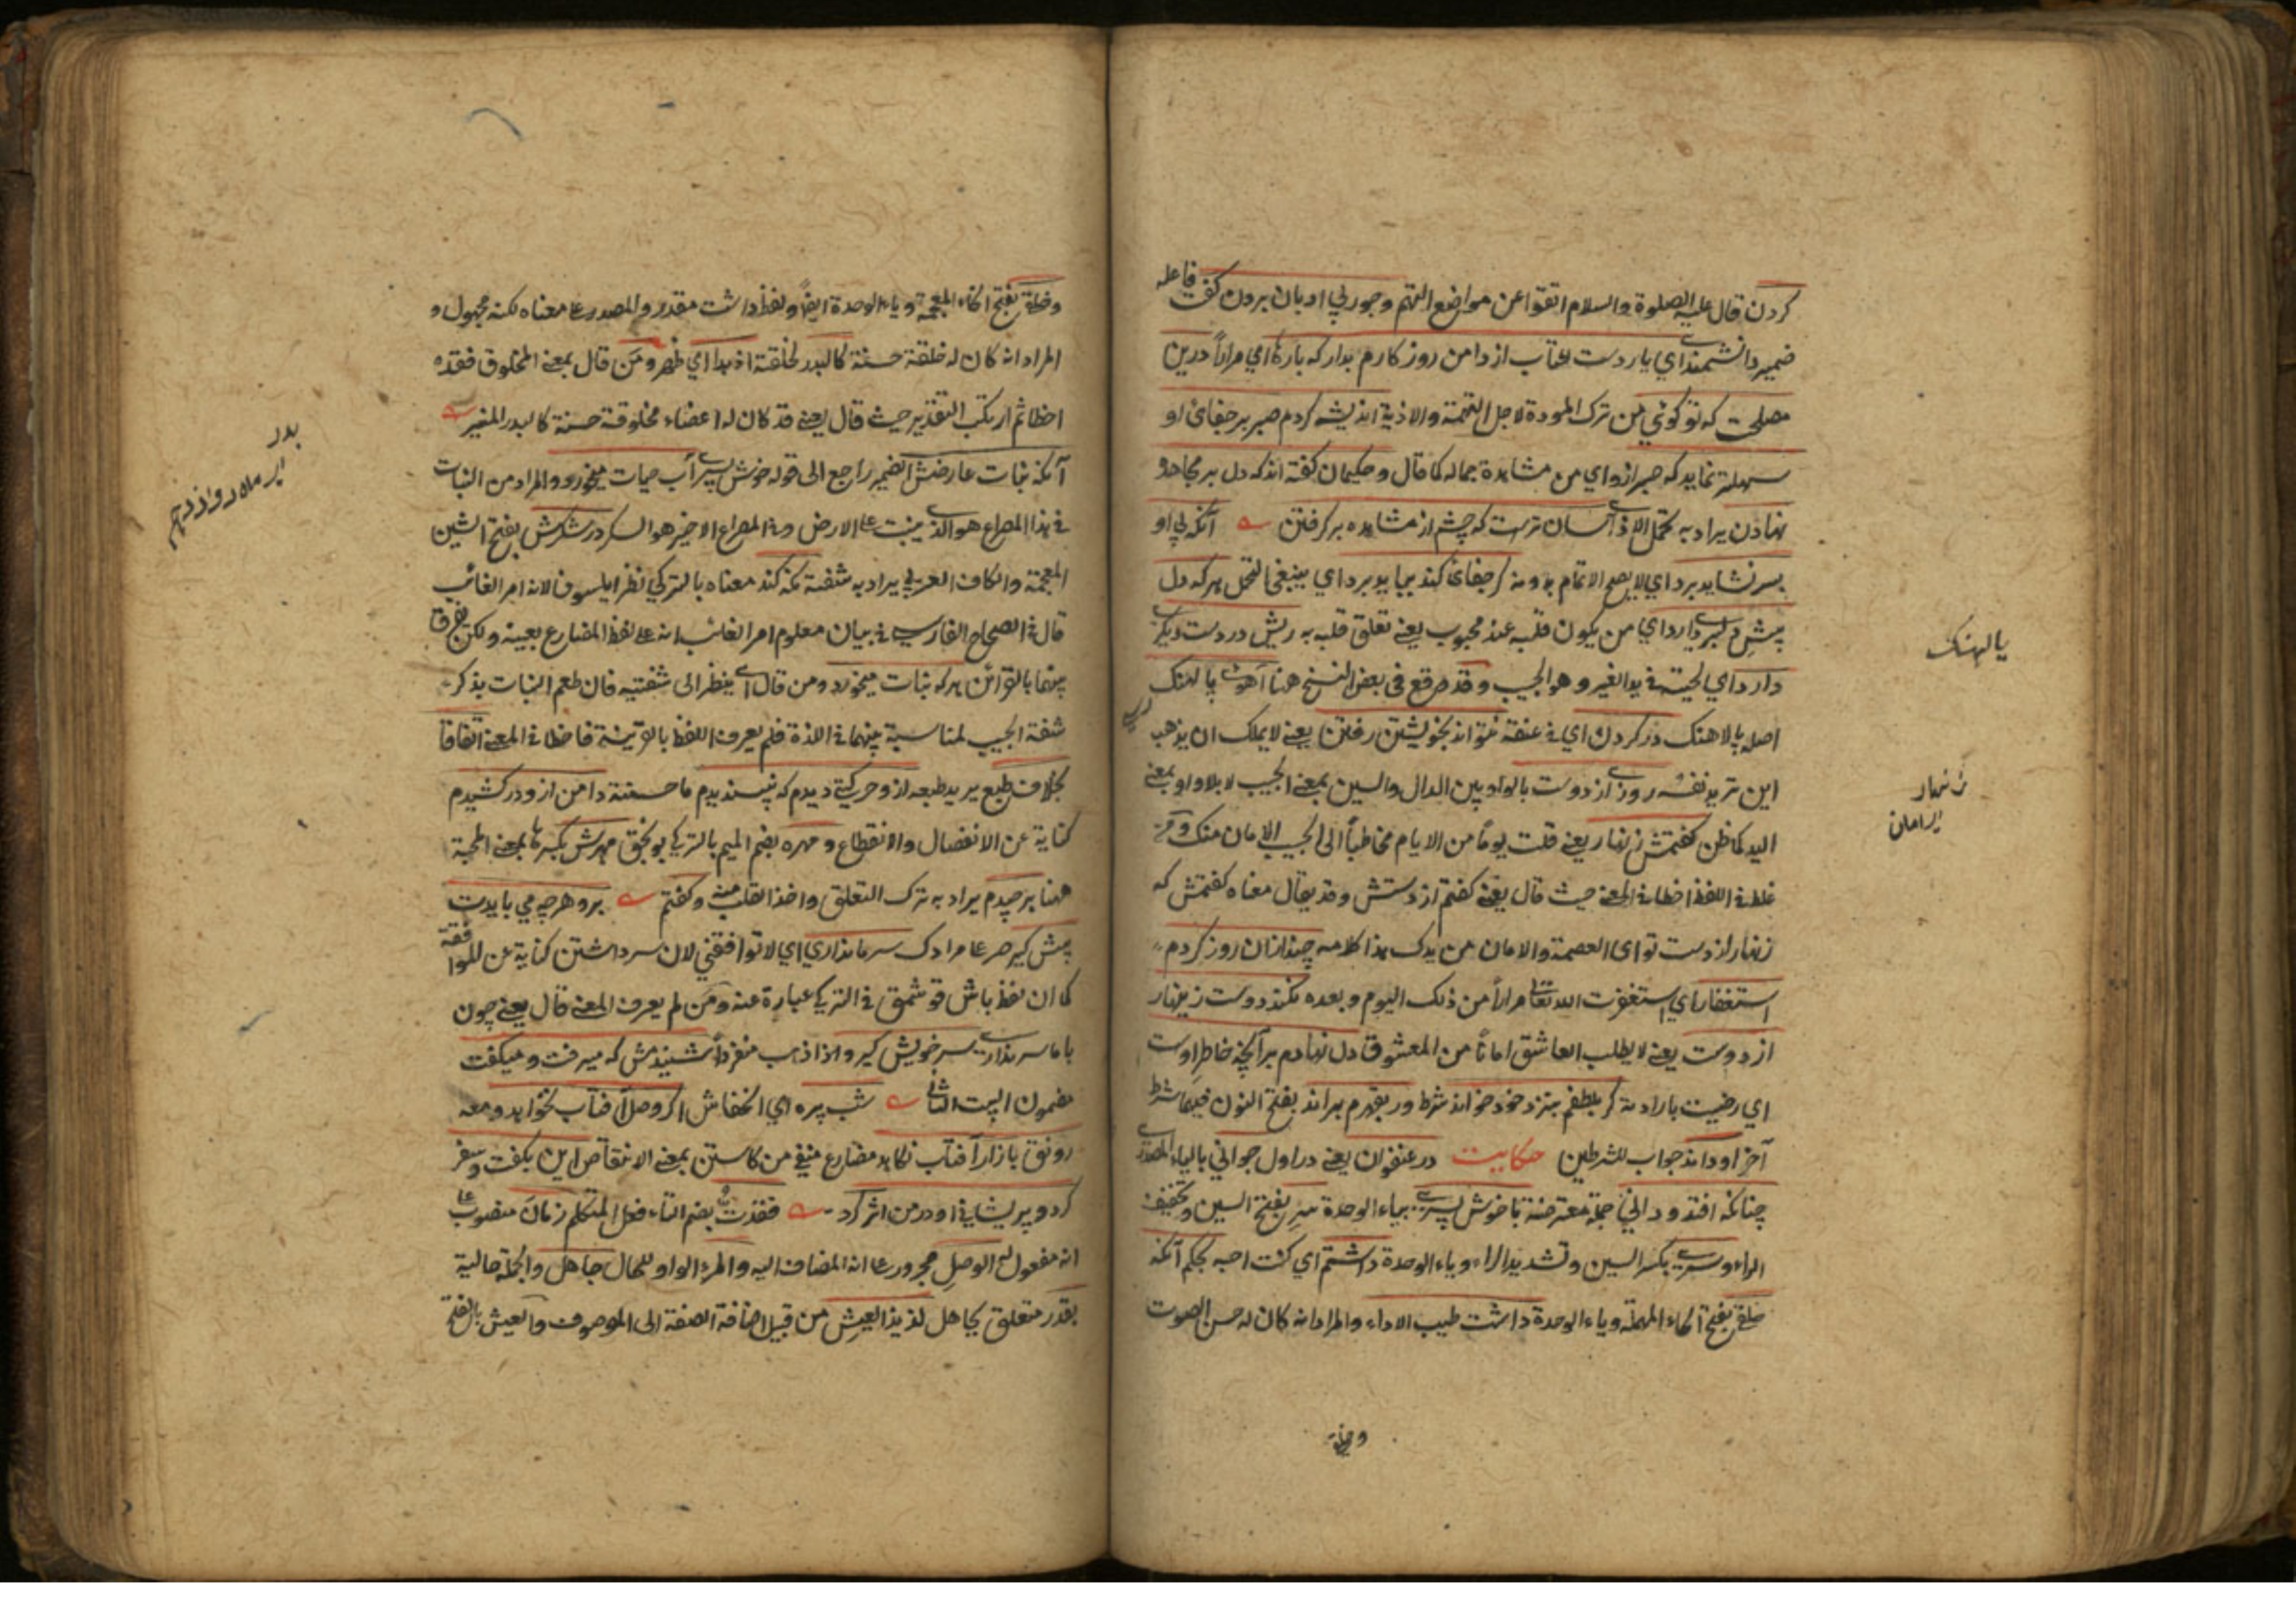 كردن قال عليه الصلوة والسلام اتقوا عن مواضع التهم وجور بي ادبان بردن كفت فاعله
ضمير دانشمند اي يار دست عتاب از دامن روزكارم بدار كه بارها اي مرارا درين
مصلحت كه تو كوئي من ترك المودة لاجل التهمة والاذية انديشه كردم صبر بر جفاى او
سهلتر نمايد كه صبر ازو اي من مشاهدة جماله كما قال وحكيمان كفته اند كه دل بر مجاهده
نهادن يراد به تحمل الاذى آسان ترست كه چشم از مشاهده بركرفتن آنكه بي او
بسر نشايد برد اي لا يصح الاتمام بدونه كر جفائي كند ببايد برد اي ينبغي التحمل هر كه دل
پيش دلبري دارد اي من يكون قلبه عند محبوب يعني تعلق قلبه به ريش در دست ديكري
دارد اي لحيته في يد الغير وهو الحبيب وقد وقع في بعض النسخ هنا آهوى پالهنك
اصله پالاهنك در كردن اي في عنقه نتواند بخويشتن رفتن يعني لا يملك ان يذهب
اين تريد نفسه روزي از دوست بالواو بين الدال والسين بمعنى الحبيب لا بلا واو بمعنى
اليد كما ظن كفتمش زنهار يعني قلت يوما من الايام مخاطبا الى الحبيب الامان منك ومن
غلط في اللفظ اخطا في المعنى حيث قال يعني كفتم از دستش وقد يقال معناه كفتمش كه
زنهار از دست تو اى العصمة والامان من يدك هذا كلامه چند ازان روز كردم
استغفار اي استغفرت الله تعالى مرارا من ذلك اليوم وبعده نكند دوست زينهار
از دوست يعني لا يطلب العاشق امانا من المعشوق دل نهادم بر آنچه خاطر اوست
اي رضيت باراده كر بلطفم بنزد خود خواند شرط ور بقهرم براند بفتح النون فيهما شرط
آخر او داند جواب للشرطين حكايت در عنفوان يعني در اول جواني بالياء المصدري
چنانكه افتد وداني جملة معترضة با خوش پسري بياء الوحدة سر بفتح السين وتخفيف
الراء وسري بكسر السين وتشديد الراء وياء الوحدة داشتم اي كنت احبه بحكم آنكه
حلقي بفتح الحاء المهملة وياء الوحدة داشت طيب الاداء والمراد انه كان له حسن الصوت
وخلقي
پالهنك
زنهار
الامان
وخلقي بفتح الخاء المعجمة وياء الوحدة ايضا ولفظ داشت مقدر والمصدر على معناه لكنه مجهول و
المراد انه كان له خلقة حسنة كالبدر لخلقته اذ بدا اي ظهر ومن قال بمعنى المخلوق فقد
اخطا ثم ارتكب التقدير حيث قال يعني قد كان له اعضاء مخلوقة حسنة كالبدر المنير
آنكه نبات عارضش الضمير راجع الى قوله خوش پسري آب حيات ميخورد والمراد من النبات
في هذا المصراع هو الذي ينبت على الارض وفي المصراع الاخير هو السكر در شكرش بفتح الشين
المعجمة والكاف العربي يراد به شفته نكه كند معناه بالتركي نظر ايلسون لانه امر الغائب
قال في الصحاح الفارسي في بيان معلوم امر الغائب انه على لفظ المضارع بعينه ولكن يفرق
بينهما بالقرائن هر كه نبات ميخورد ومن قال اي ينظر الى شفتيه فان طعم النبات يذكر
شفة الحبيب لمناسبة بينهما في اللذة فلم يعرف اللفظ بالقرينة فاخطا في المعنى اتفاقا
بخلاف طبع يريد طبعه از وحركتي ديدم كه نپسنديدم ما حسنته دامن ازو در كشيدم
كناية عن الانفصال والانقطاع ومهره بضم الميم بالتركي بونجق مهرش بكسرها بمعنى المحبة
ههنا برچيدم يراد به ترك التعلق واخذ القلب منه وكفتم برو هر چه مي بايدت
پيش كير على مرادك سر ما نداري اي لا توافقني لان سر داشتن كناية عن الموافقة
كما ان لفظ باش قوشمق في التركي عبارة عنه ومن لم يعرف المعنى قال يعني چون
با ما سر نداري سر خويش كير واذا ذهب منفردا شنيدمش كه ميرفت وميكفت
مضمون البيت التاني شب پره اي الخفاش اكر وصل آفتاب نخواهد ومعه
رونق بازار آفتاب نكاهد مضارع منفي من كاستن بمعنى الانتقاص اين بكفت وسفر
كرد وپريشاني او در من اثر كرد فقدت بضم التاء فعل المتكلم زمان منصوب على
انه مفعول له الوصل مجرور على انه المضاف اليه والمرء الواو للحال جاهل والجملة حالية
بقدر متعلق بجاهل لذيذ العيش من قبيل اضافة الصفة الى الموصوف والعيش بالفتح
بدر